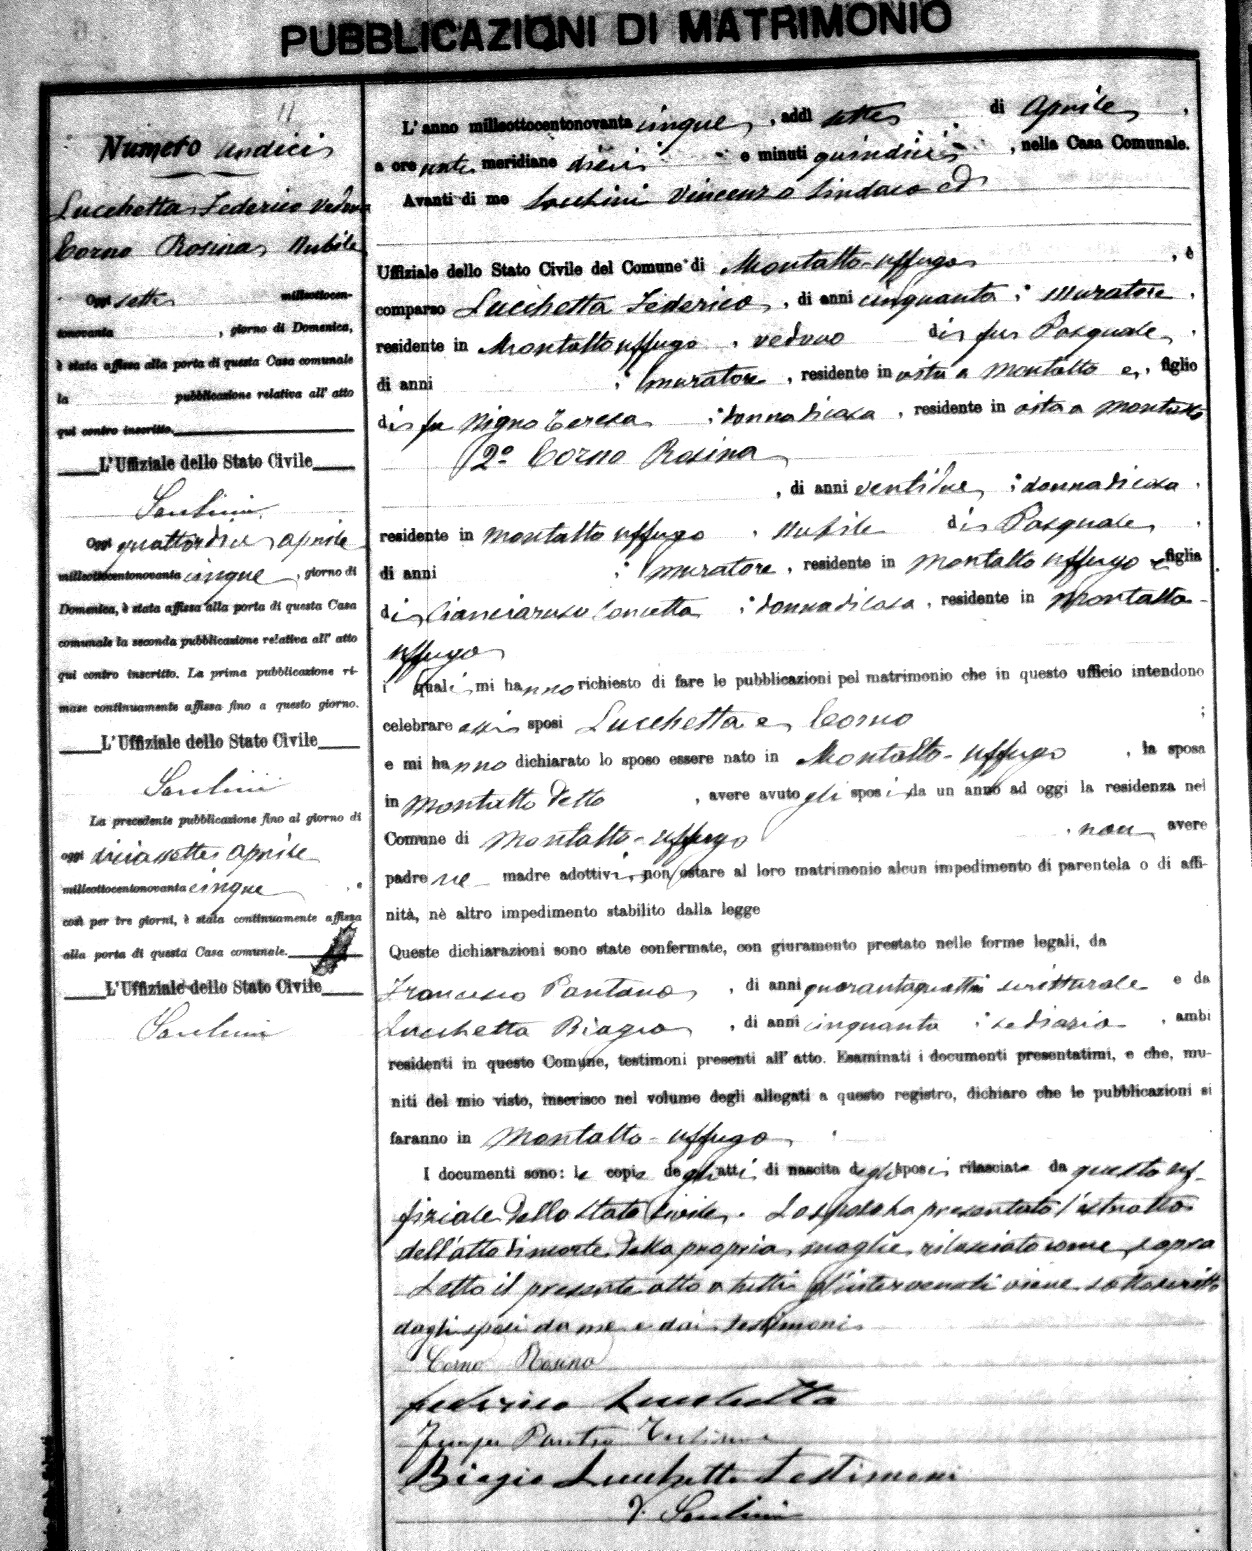 PUBBLICAZIONI DI MATRIMONIO
11
Numero undici
Lucchetta Federico vedovo
Corno Rosina nubile
Oggi sette milleottocen-
tonovanta , giorno di Domenica,
è stata affissa alla porta di questa Casa comunale
la pubblicazione relativa all' atto
qui contro inscritto.
L'Uffiziale dello Stato Civile
Oggi quattordici aprile
milleottocentonovanta cinque , giorno di
Domenica, è stata affissa alla porta di questa Casa
comunale la seconda pubblicazione relativa all' atto
qui contro inscritto. La prima pubblicazione ri-
mase continuamente affissa fino a questo giorno.
L'Uffiziale dello Stato Civile
La precedente pubblicazione fino al giorno di
oggi diciassette aprile
milleottocentonovanta cinque
così per tre giorni, è stata continuamente affissa
alla porta di questa Casa comunale.
L'Uffiziale dello Stato Civile
L'anno milleottocentonovanta cinque , addì sette di Aprile ,
a ore anti meridiane dieci e minuti quindici , nella Casa Comunale.
Avanti di me Vincenzo Sindaco ed
Uffiziale dello Stato Civile del Comune di Montalto-uffugo , è
comparso Lucchetta Federico , di anni cinquanta ; muratore ,
residente in Montalto uffugo , vedovo di fu Pasquale ,
di anni ; muratore , residente in vita a Montalto e , figlio
di fu Nigro Teresa ; donna di casa , residente in vita a Montalto
2º Corno Rosina
, di anni ventidue ; donna di casa ,
residente in Montalto uffugo , nubile di Pasquale ,
di anni ; muratore , residente in Montalto uffugo e figlia
di Cianciaruso Concetta ; donna di casa , residente in Montalto-
uffugo
i quali mi hanno richiesto di fare le pubblicazioni pel matrimonio che in questo ufficio intendono
celebrare essi sposi Lucchetta e Corno ;
e mi hanno dichiarato lo sposo essere nato in Montalto-uffugo , la sposa
in Montalto detto , avere avuto gli sposi da un anno ad oggi la residenza nel
Comune di Montalto-uffugo , non avere
padre ne madre adottivi, non ostare al loro matrimonio alcun impedimento di parentela o di affi-
nità, nè altro impedimento stabilito dalla legge
Queste dichiarazioni sono state confermate, con giuramento prestato nelle forme legali, da
Francesco Pantano , di anni quarantaquattro scritturale e da
Lucchetta Biagio , di anni cinquanta ; sediario , ambi
residenti in questo Comune, testimoni presenti all' atto. Esaminati i documenti presentatimi, e che, mu-
niti del mio visto, inserisco nel volume degli allegati a questo registro, dichiaro che le pubblicazioni si
faranno in Montalto-uffugo
I documenti sono: le copie degli atti di nascita degli sposi rilasciate da questo uf-
fiziale dello stato Civile. Lo sposo ha presentato l'estratto
dell'atto di morte della propria moglie rilasciato come sopra
Letto il presente atto a tutti gl'intervenuti viene sottoscritto
dagli sposi da me e dai testimoni
Corno Rosina
Federico Lucchetta
Biagio Lucchetta testimone